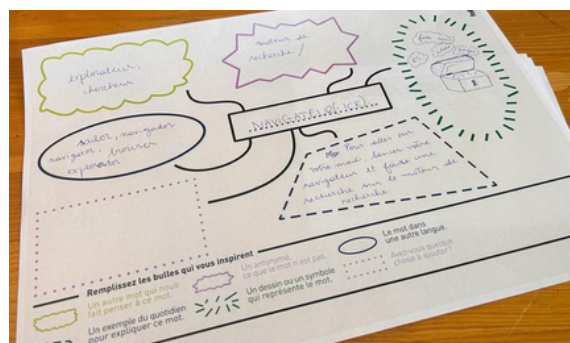 explorateur,
chercheur
moteur de
recherche /
NAVIGATEUR(ICE)
sailor, navegador
navigator, browser
explorador
Pour aller sur
votre mail, lancer votre
navigateur et faite une
recherche sur le moteur de
recherche
Remplissez les bulles qui vous inspirent
Un autre mot qui nous
fait penser à ce mot.
Un exemple du quotidien
pour expliquer ce mot.
Un antonyme,
ce que le mot n'est pas.
Un dessin ou un symbole
qui représente le mot.
Le mot dans
une autre langue.
Avez-vous quelque
chose à ajouter?